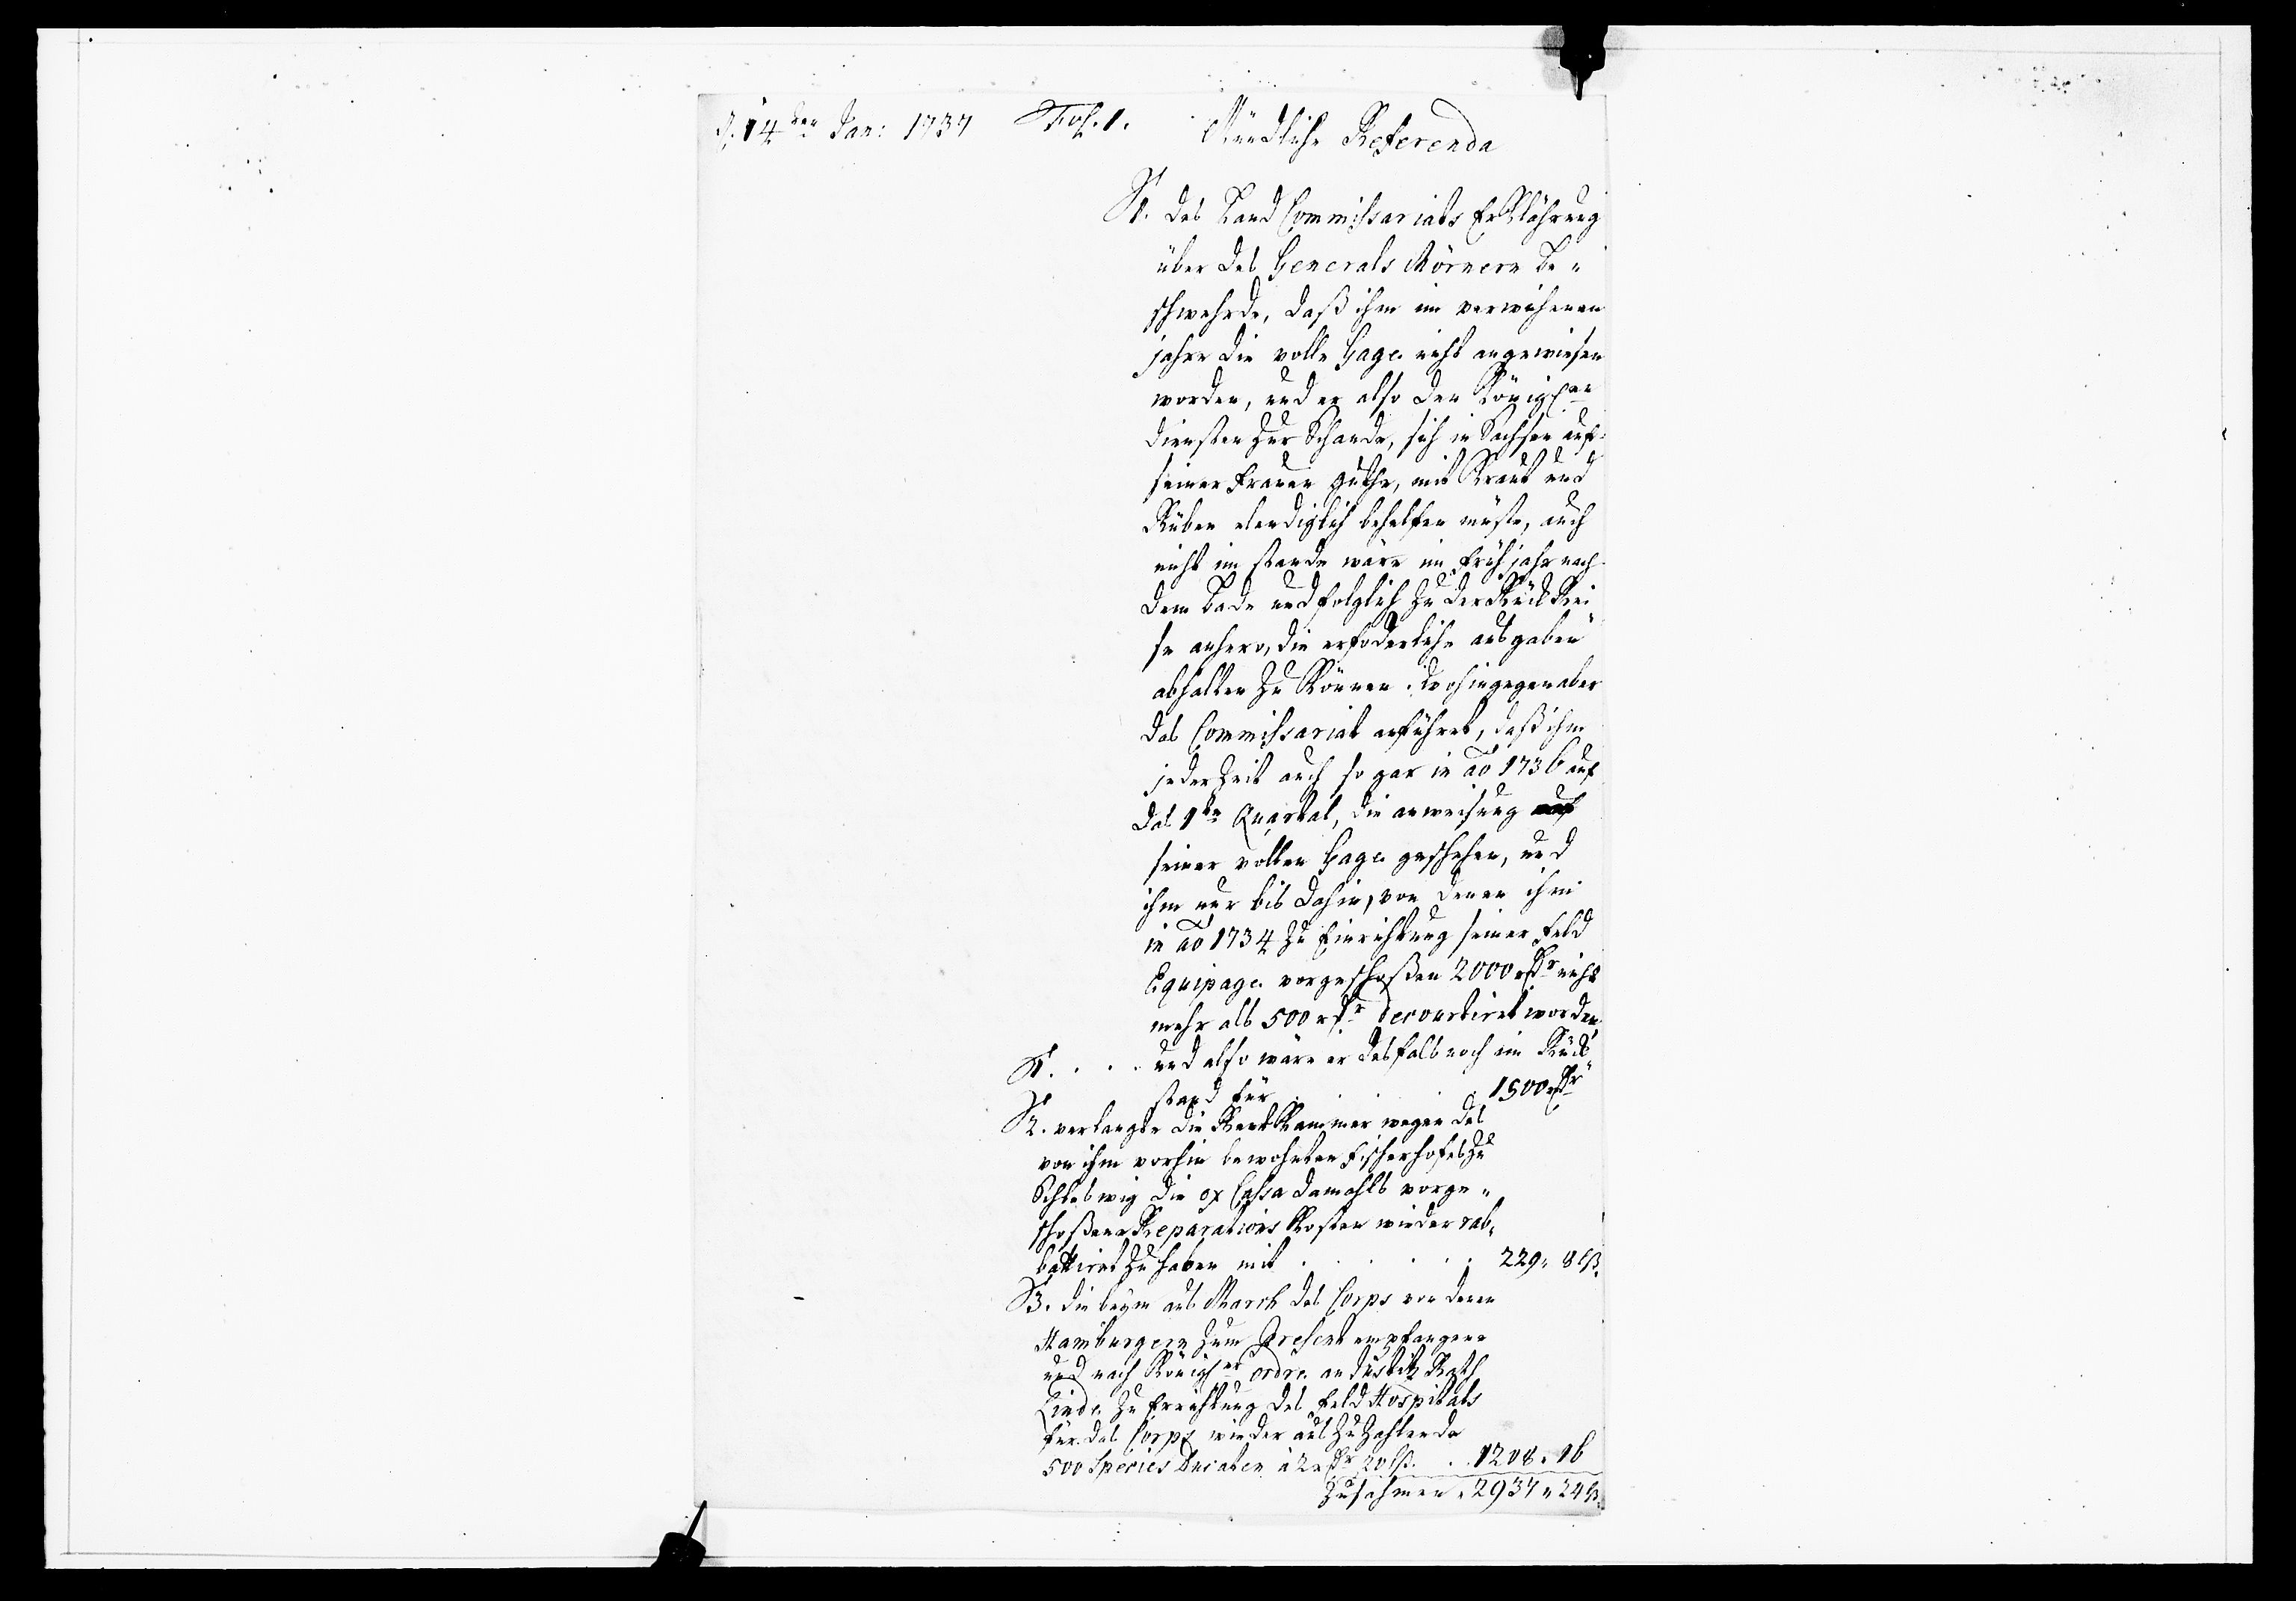 d. 14ten Jan: 1737 Fol. 1. Mündliche Referenda
№ 1. des Land Commissariats Erklährung
über des Generals Mörnern Be„
schwehrde, daß ihm im verwichenen
jahre die volle Gage nicht angewiesen
worden, und er also den Königl.en
Diensten zur Schande, sich in Sachsen auf
seiner Frauen Guthe, mit Kraut und
Rüben elendiglich behelfen müste, auch
nicht im stande wäre im Frühjahr nach
dem Bade und folglich zu der Rück Rei„
se anhero, die erfoderliche ausgaben
abhalten zu können. Wohingegen aber
das Commissariat anführet, daß ihm
jederzeit auch so gar in ao 1736 auf
das 1te Quartal, die anweisung
seiner vollen Gage geschehen, und
ihm nur bis dahin, von denen ihm
in ao 1734 zu Einrichtung seiner Feld
Equipage vorgeschoßen 2000 rthr nicht
mehr als 500 rthr decourtiret worden
№ 1. . . . und also wäre er desfals noch im Rück„
stand für . . . 1500 rthr
№ 2. verlangte die Rent Kammer wegen des
von ihm vorhin bewohnten Fischerhofes zu
Schleswig die ex Cassa damahls vorge„
schoßene Reparations Kosten wieder rab„
battiret zu haben mit . . . . . 229„ 8 lß.
№ 3. die beym aus March des Corps von denen
Hamburgern zum Present empfangene
und nach Königl.er ordre an Justitz Rath
Linde zu Errichtung des Feld Hospitals
für das Corps wieder aus zu zahlende
500 Species Ducaten à 2 rthr 20 lß. . . 1208„ 16
Zusahmen „ 2937 „ 24 lß.